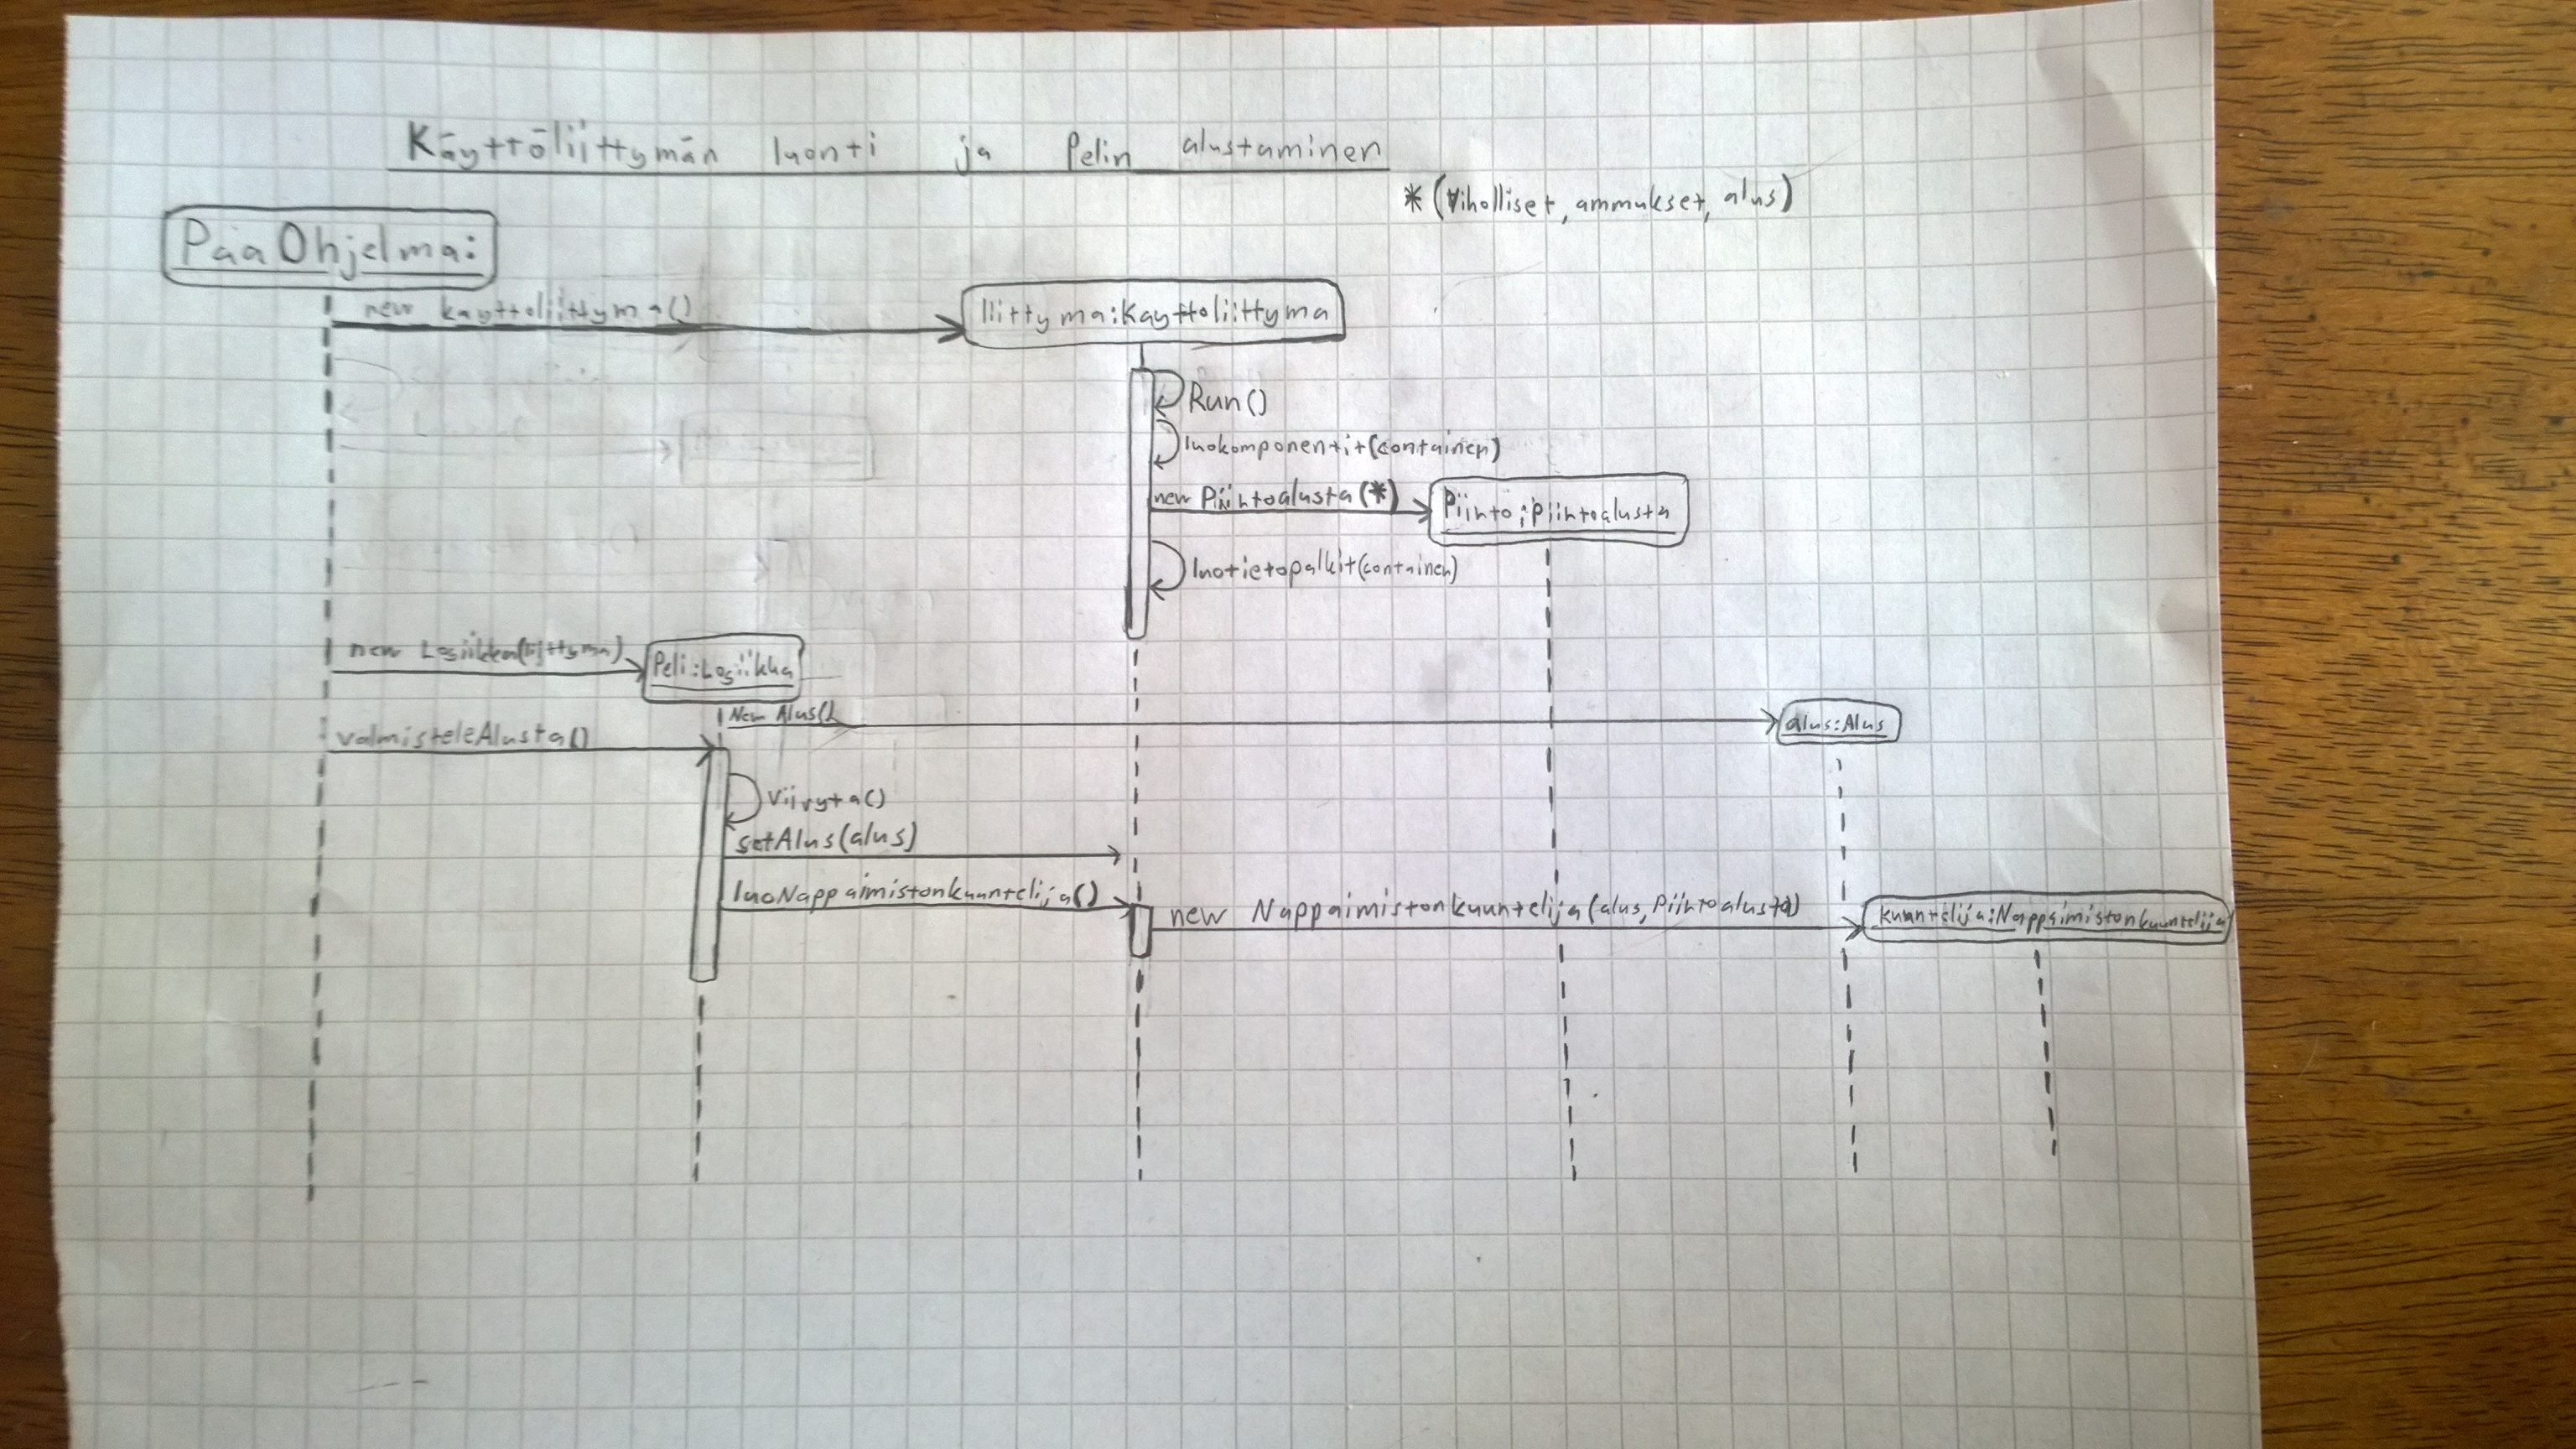 Käyttöliittymän luonti ja Pelin alustaminen
* (Viholliset, ammukset, alus)
PaaOhjelma:
new kayttoliittyma()
liittyma:Kayttoliittyma
Run()
luokomponentit(container)
new Piirtoalusta(*)
Piirto:Piirtoalusta
luotietopalkit(container)
new Logiikka(liittyma)
Peli:Logiikka
New Alus()
alus:Alus
valmisteleAlusta()
Viivyta()
setAlus(alus)
luoNappaimistonkuuntelija()
new Nappaimistonkuuntelija(alus, Piirtoalusta)
kuuntelija:Nappaimistonkuuntelija